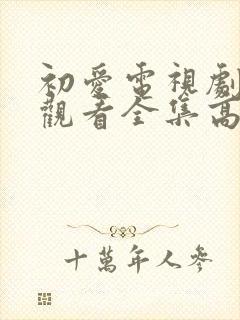 初愛電視劇
觀看全集高
十萬年人參